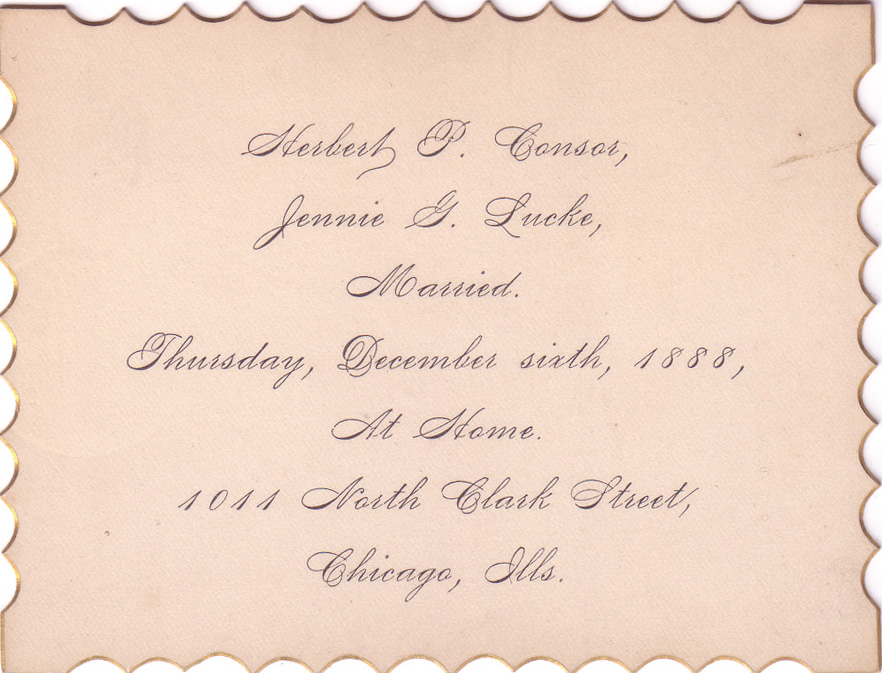 Herbert P. Consor,
Jennie G. Lucke,
Married.
Thursday, December sixth, 1888,
At Home.
1011 North Clark Street,
Chicago, Ills.